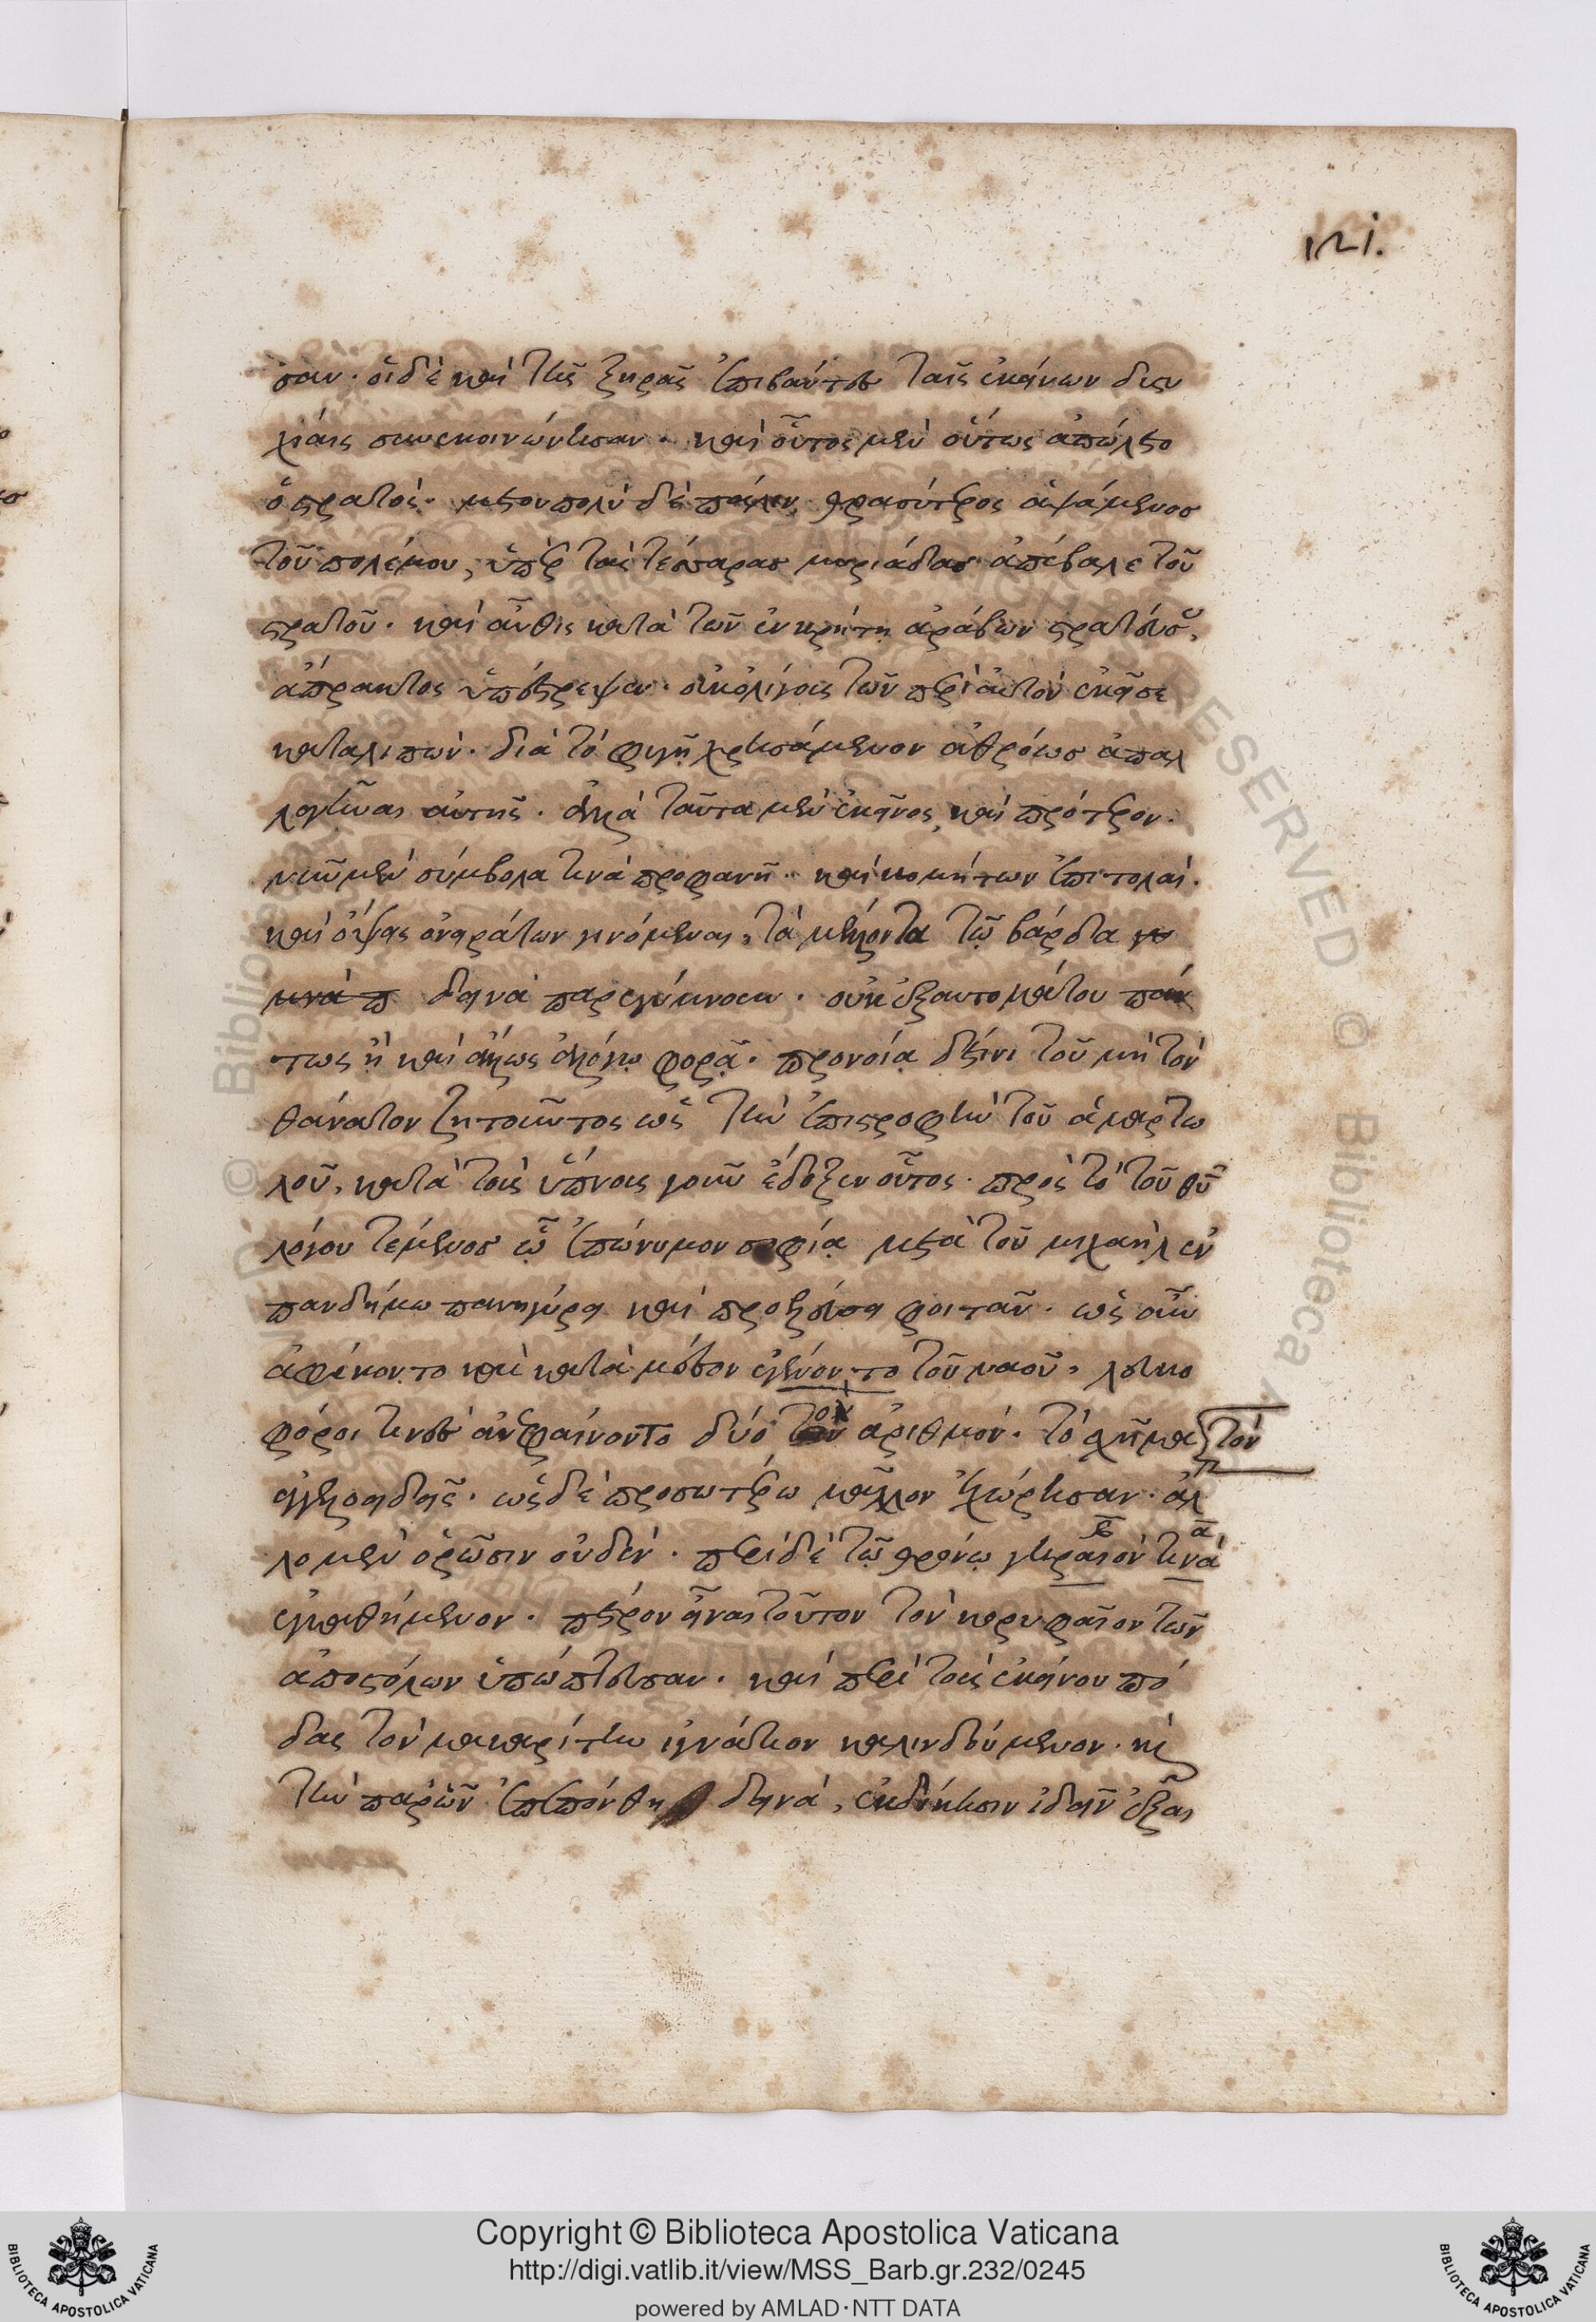 121.
σαν· οἱ δὲ καὶ τῆς ξηρᾶς ἐπιβάντες ταῖς ἐκείνων δυσ
χίαις συνεκοινώνησαν· καὶ οὗτος μὲν οὕτως ἀπώλετο
ὁ στρατός· μετ' οὐ πολὺ δὲ πάλιν θρασύτερος ἁψάμενος
τοῦ πολέμου, ὑπὲρ τὰς τέσσαρας μυριάδας ἀπέβαλε τοῦ
στρατοῦ· καὶ αὖθις κατὰ τῶν ἐν κρήτη ἀράβων στρατεύσας,
ἄπρακτος ὑπέστρεψεν· οὐκ ὀλίγους τῶν περὶ αὐτὸν ἐκεῖσε
καταλιπών· διὰ τὸ φυγῇ χρησάμενον ἀθρόως ἀπαλ
λαγῆναι αὐτῆς· ἀλλὰ ταῦτα μὲν ἐκεῖνος, καὶ πρότερον·
νῦν μὲν σύμβολα τινὰ προφανῆ· καὶ κομήτων ἐπιτολαί·
καὶ ὄψεις ὀνειράτων γινόμεναι, τὰ μέλλοντα τῷ βάρδα
δεινὰ παρεγύμνουν· οὐκ ἐξ αὐτομάτου πάν
τως ἢ καὶ ἄλλως ἀλόγῳ φορᾷ· προνοίᾳ δέ τινι τοῦ μὴ τὸν
θάνατον ζητοῦντος ὡς τὴν ἐπιστροφὴν τοῦ ἁμαρτω
λοῦ, κατὰ τοὺς ὕπνους γοῦν ἔδοξεν οὗτος· πρὸς τὸ τοῦ θῦ
λόγου τέμενος ᾧ ἐπώνυμον σοφία μετὰ τοῦ μιχαὴλ ἐν
πανδήμω πανηγύρει καὶ προελεύσει φοιτᾶν· ὡς οὖν
ἀφίκοντο καὶ κατὰ μέσον ἐγένοντο τοῦ ναοῦ, λευκο
φόροι τινὲς ἀνεφαίνοντο δύο τὸν ἀριθμόν· τὸ σχῆμα τὸν
ἀγγελοειδεῖς· ὡς δὲ προσωτέρω μᾶλλον ἐχώρησαν· ἄλ
λο μὲν ὁρῶσιν οὐδέν· περὶ δὲ τῷ θρόνῳ γηραιὸν τινὰ
ἐγκαθήμενον· πέτρον εἶναι τοῦτον τὸν κορυφαῖον τῶν
ἀποστόλων ὑπώπτευσαν· καὶ περὶ τοὺς ἐκείνου πό
δας τὸν μακαρίτην ἰγνάτιον καλινδούμενον· καὶ
τὴν παρ' ὧν ἐπεπόνθη δεινά, ἐκδίκησιν ἰδεῖν ἐξαι
Copyright © Biblioteca Apostolica Vaticana
http://digi.vatlib.it/view/MSS_Barb.gr.232/0245
powered by AMLAD·NTT DATA